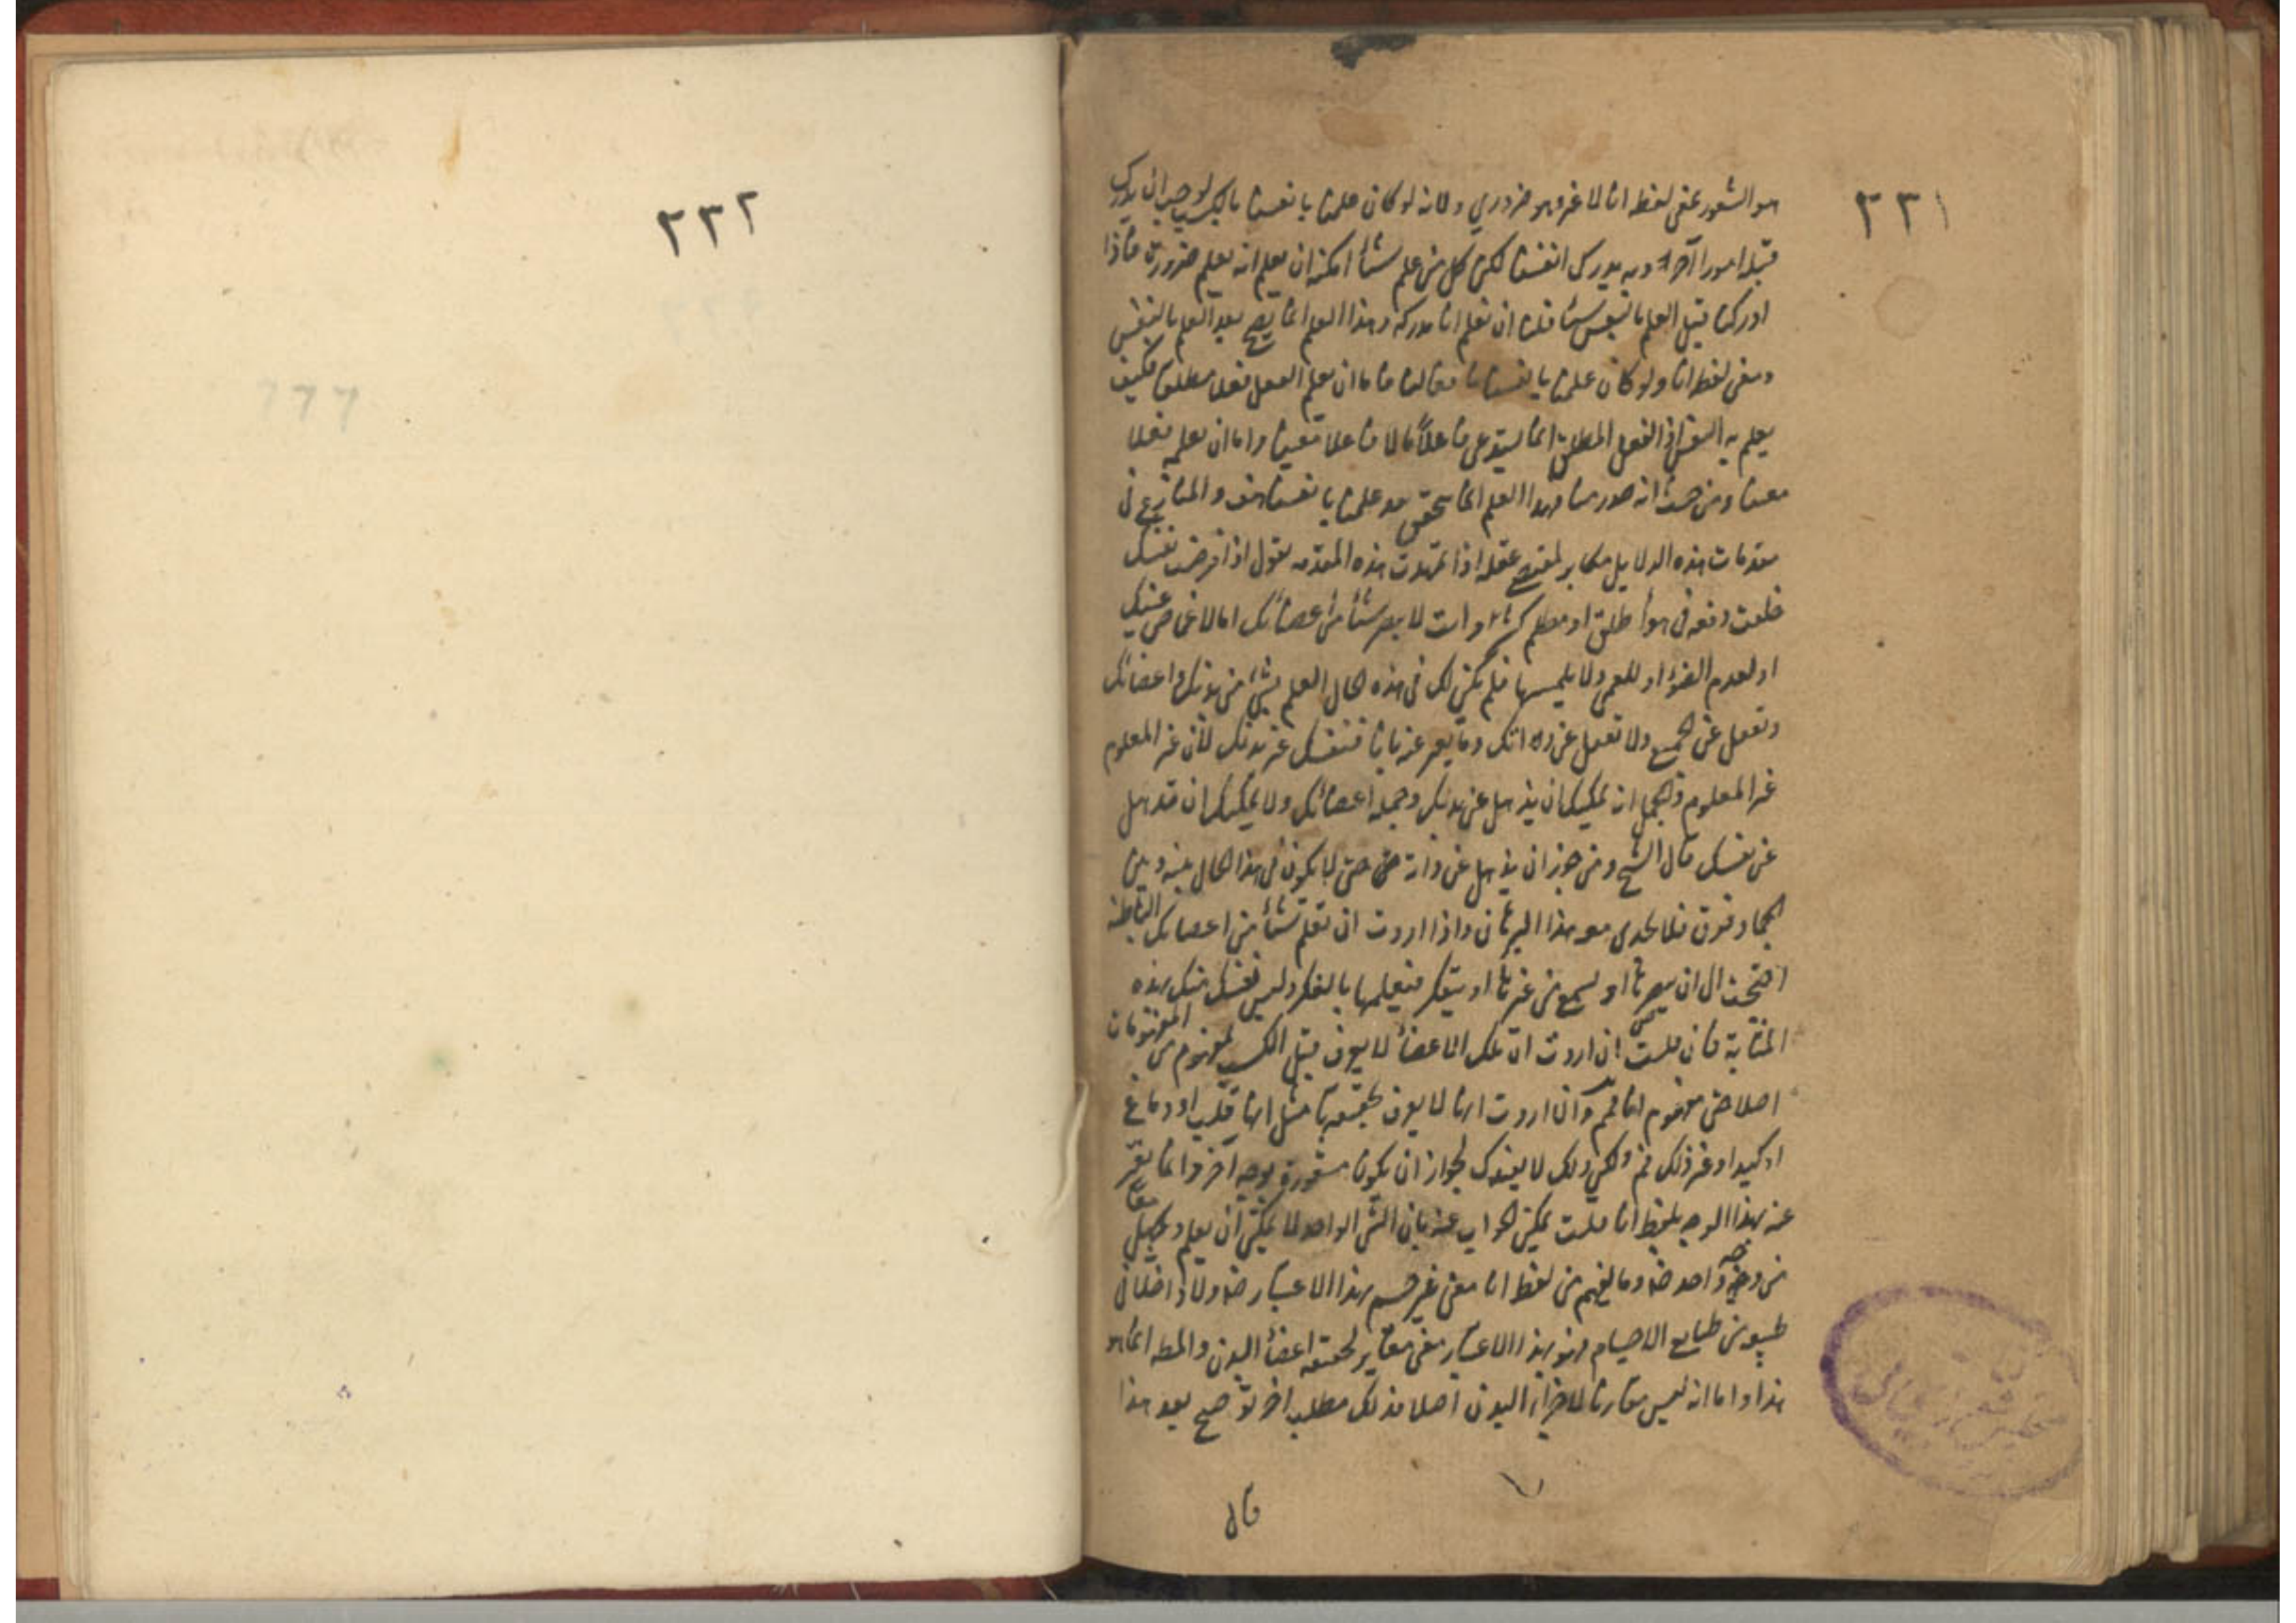 ٢٣١
هو الشعور بمعنى لفظ انا لا غير وهو ضروري ولانه لو كان علمنا بانفسنا بالكسب لوجب ان يدرك
قبله امورا آخر وبه يدرك انفسنا لكن كل من علم شيئا امكنه ان يعلم انه يعلم ضرورة فاذا
ادركنا قبل العلم بالنفس شيئا فلنا ان نعلم انا مدركه وهذا العلم انما يصح بعد العلم بالنفس
ومعنى لفظ انا ولو كان علمنا بانفسنا بافعالنا فاما ان يعلم الفعل فعلا مطلقا فكيف
يعلم به النفس اذ الفعل المطلق انما يستدعي فاعلا ما لا فاعلا معينا واما ان يعلمه فعلا
معينا ومن حيث انه صدر منا فهذا العلم انما يتحقق بعد علمنا بانفسنا هف والمنازع في
مقدمات هذه الدلايل مكابر لمقتضى عقله اذا تمهدت هذه المقدمه نقول اذا فرضت نفسك
خلقت دفعه في هوأ طلق او مظلم وانت لا يبصر شيئا من اعضائك اما لاغماض عينيك
او لعدم الضوء او للعمى ولا يلمسها فلم يكن لك في هذه الحال العلم بشئ من بدنك واعضائك
وتغفل عن الجميع ولا تغفل عن ذاتك وما يعبر عنه بانا فنفسك غير بدنك لان غير المعلوم
غير المعلوم وبالجمله انه يمكنك ان يذهل عن بدنك وجمله اعضائك ولا يمكنك ان تذهل
عن نفسك قال الشيخ ومن جوز ان يذهل عن ذاته حتى لا يكون في هذا الحال بينه وبين
الجماد فرق فلا يجدى معه هذا البرهان واذا اردت ان تعلم شيئا من اعضائك الباطنه
احتجت الى ان يبصرها او يسمع من غيرها او يتفكر فيعلمها بالفكر وليس نفسك منك بهذه
المثابة فان قلت ان اردت ان تلك الاعضأ لا يعرف قبل الكسب بمفهوم من المفهومات
اصلا حتى مفهوم انا فمم وان اردت انها لا يعرف بحقيقتها مثل انها قلب او دماغ
او كبد او غير ذلك فم ولكن ذلك لا يفيدك لجواز ان يكون متصورة بوجه آخر وانما يعبر
عنه بهذا الوجه بلفظ انا قلت يمكن الجواب عنه بان الشئ الواحد لا يمكن ان يعلم ويجهل معا
من وجه واحد وما يفهم من لفظ انا معنى غير جسم بهذا الاعتبار ولا داخلا في
طبيعة من طبايع الاجسام فهو بهذا الاعتبار معنى مغاير لحقيقة اعضأ البدن والمط انما هو
هذا واما انه ليس مقارنا لاجزاء البدن اصلا فذلك مطلب اخر توضح بعد هذا
قال
٢٣٢